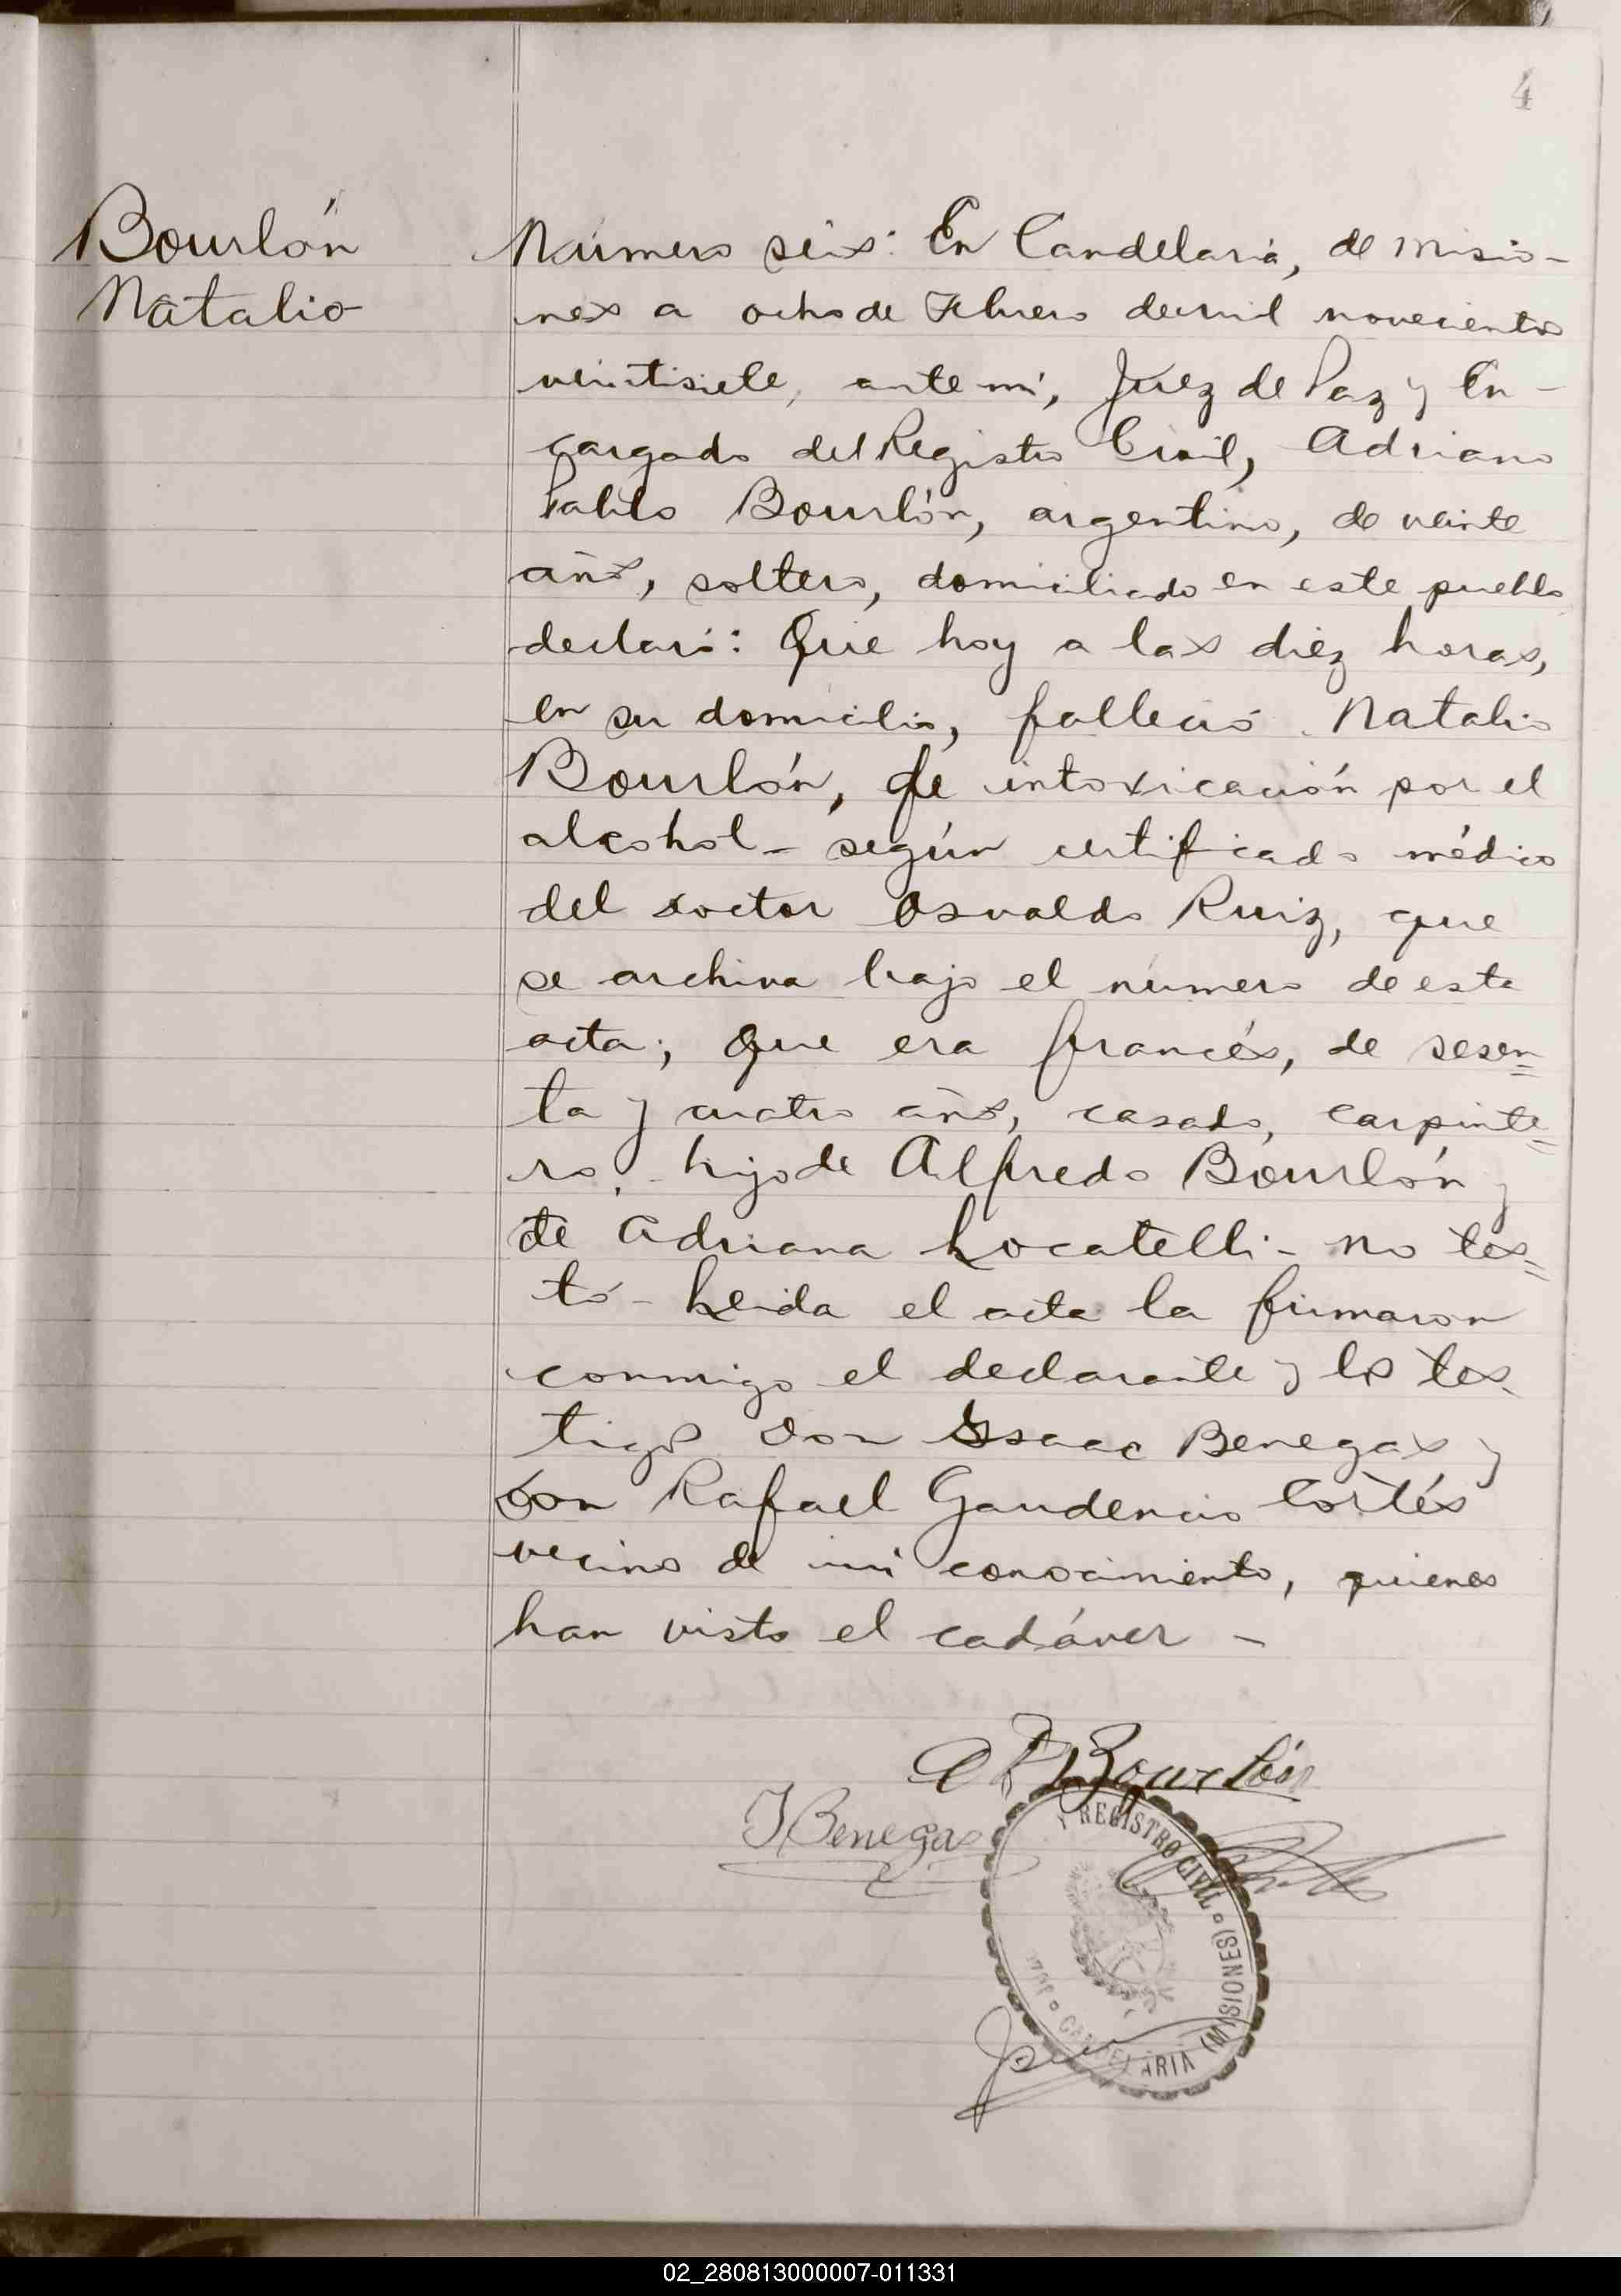 4
Bourlón
Natalio
Número seis: En Candelaria, de Misio-
nes a ocho de Febrero de mil novecientos
veintisiete, ante mí, Juez de Paz y En-
cargado del Registro Civil, Adriano
Pablo Bourlón, argentino, de veinte
años, soltero, domiciliado en este pueblo
declaró: Que hoy a las diez horas,
en su domicilio, falleció Natalio
Bourlón, de intoxicación por el
alcohol - según certificado médico
del doctor Osvaldo Ruiz, que
se archiva bajo el número de esta
acta; que era francés, de sesen=
ta y cuatro años, casado, carpinte=
ro, - hijo de Alfredo Bourlón y
de Adriana Locatelli - no tes=
tó - Leida el acta la firmaron
conmigo el declarante y los tes-
tigos Don Isaac Benegas y
don Rafael Gaudencio Cortés
vecinos de mi conocimiento, quienes
han visto el cadáver -
A P Bourlón
I Benegas
Y REGISTRO CIVIL
CANDELARIA (MISIONES)
02_280813000007-011331